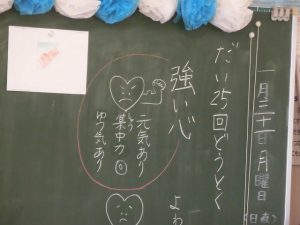 一月三十一日月曜日
(日直)
だい25回どうとく
強い心
元気あり
集中力◎
しゅう
ゆう気あり
よわ